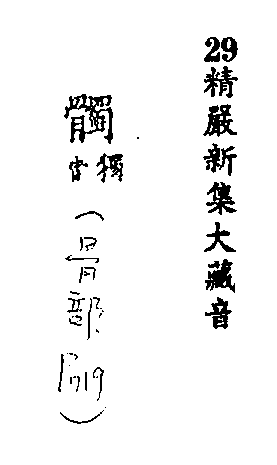 29精嚴新集大藏音
髑
獨音
(骨部
)